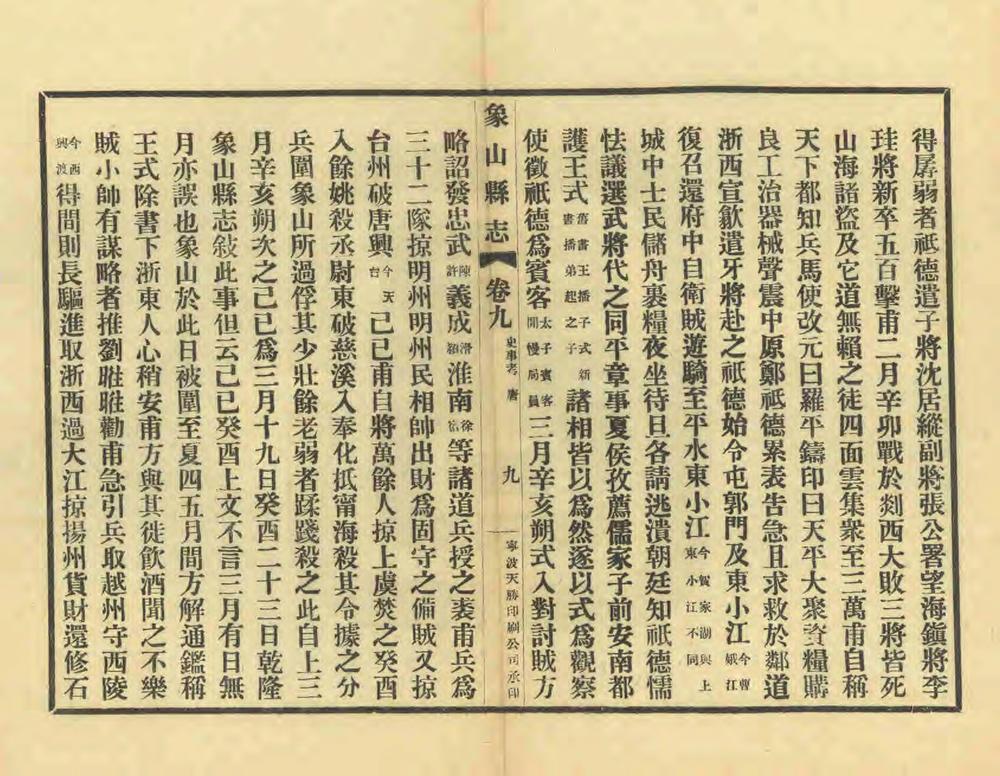 得孱弱者祇德遣子將沈居縱副將張公署望海鎭將李
珪將新卒五百擊甫二月辛卯戰於剡西大敗三將皆死
山海諸盜及它道無賴之徒四面雲集衆至三萬甫自稱
天下都知兵馬使改元曰羅平鑄印曰天平大聚資糧購
良工治器械聲震中原鄭祇德累表告急且求救於鄰道
浙西宣歙遣牙將赴之祇德始令屯郭門及東小江今曹娥江
復召還府中自衛賊遊騎至平水東小江今賀家湖與上東小江不同
城中士民儲舟裹糧夜坐待旦各請逃潰朝廷知祇德懦
怯議選武將代之同平章事夏侯孜薦儒家子前安南都
護王式舊書王播子式新書播弟起之子諸相皆以爲然遂以式爲觀察
使徵祇德爲賓客太子賓客閒慢局員三月辛亥朔式入對討賊方
象山縣志 卷九 史事考 唐 九 寧波天勝印刷公司承印
略詔發忠武陳許義成滑潁淮南徐等諸道兵授之裘甫兵爲
三十二隊掠明州明州民相帥出財爲固守之備賊又掠
台州破唐興今天台己巳甫自將萬餘人掠上虞焚之癸酉
入餘姚殺丞尉東破慈溪入奉化抵甯海殺其令據之分
兵圍象山所過俘其少壯餘老弱者蹂踐殺之此自上三
月辛亥朔次之己巳爲三月十九日癸酉二十三日乾隆
象山縣志敍此事但云己巳癸酉上文不言三月有日無
月亦誤也象山於此日被圍至夏四五月間方解通鑑稱
王式除書下浙東人心稍安甫方與其徒飮酒聞之不樂
賊小帥有謀略者推劉暀暀勸甫急引兵取越州守西陵
今西興渡得間則長驅進取浙西過大江掠揚州貨財還修石